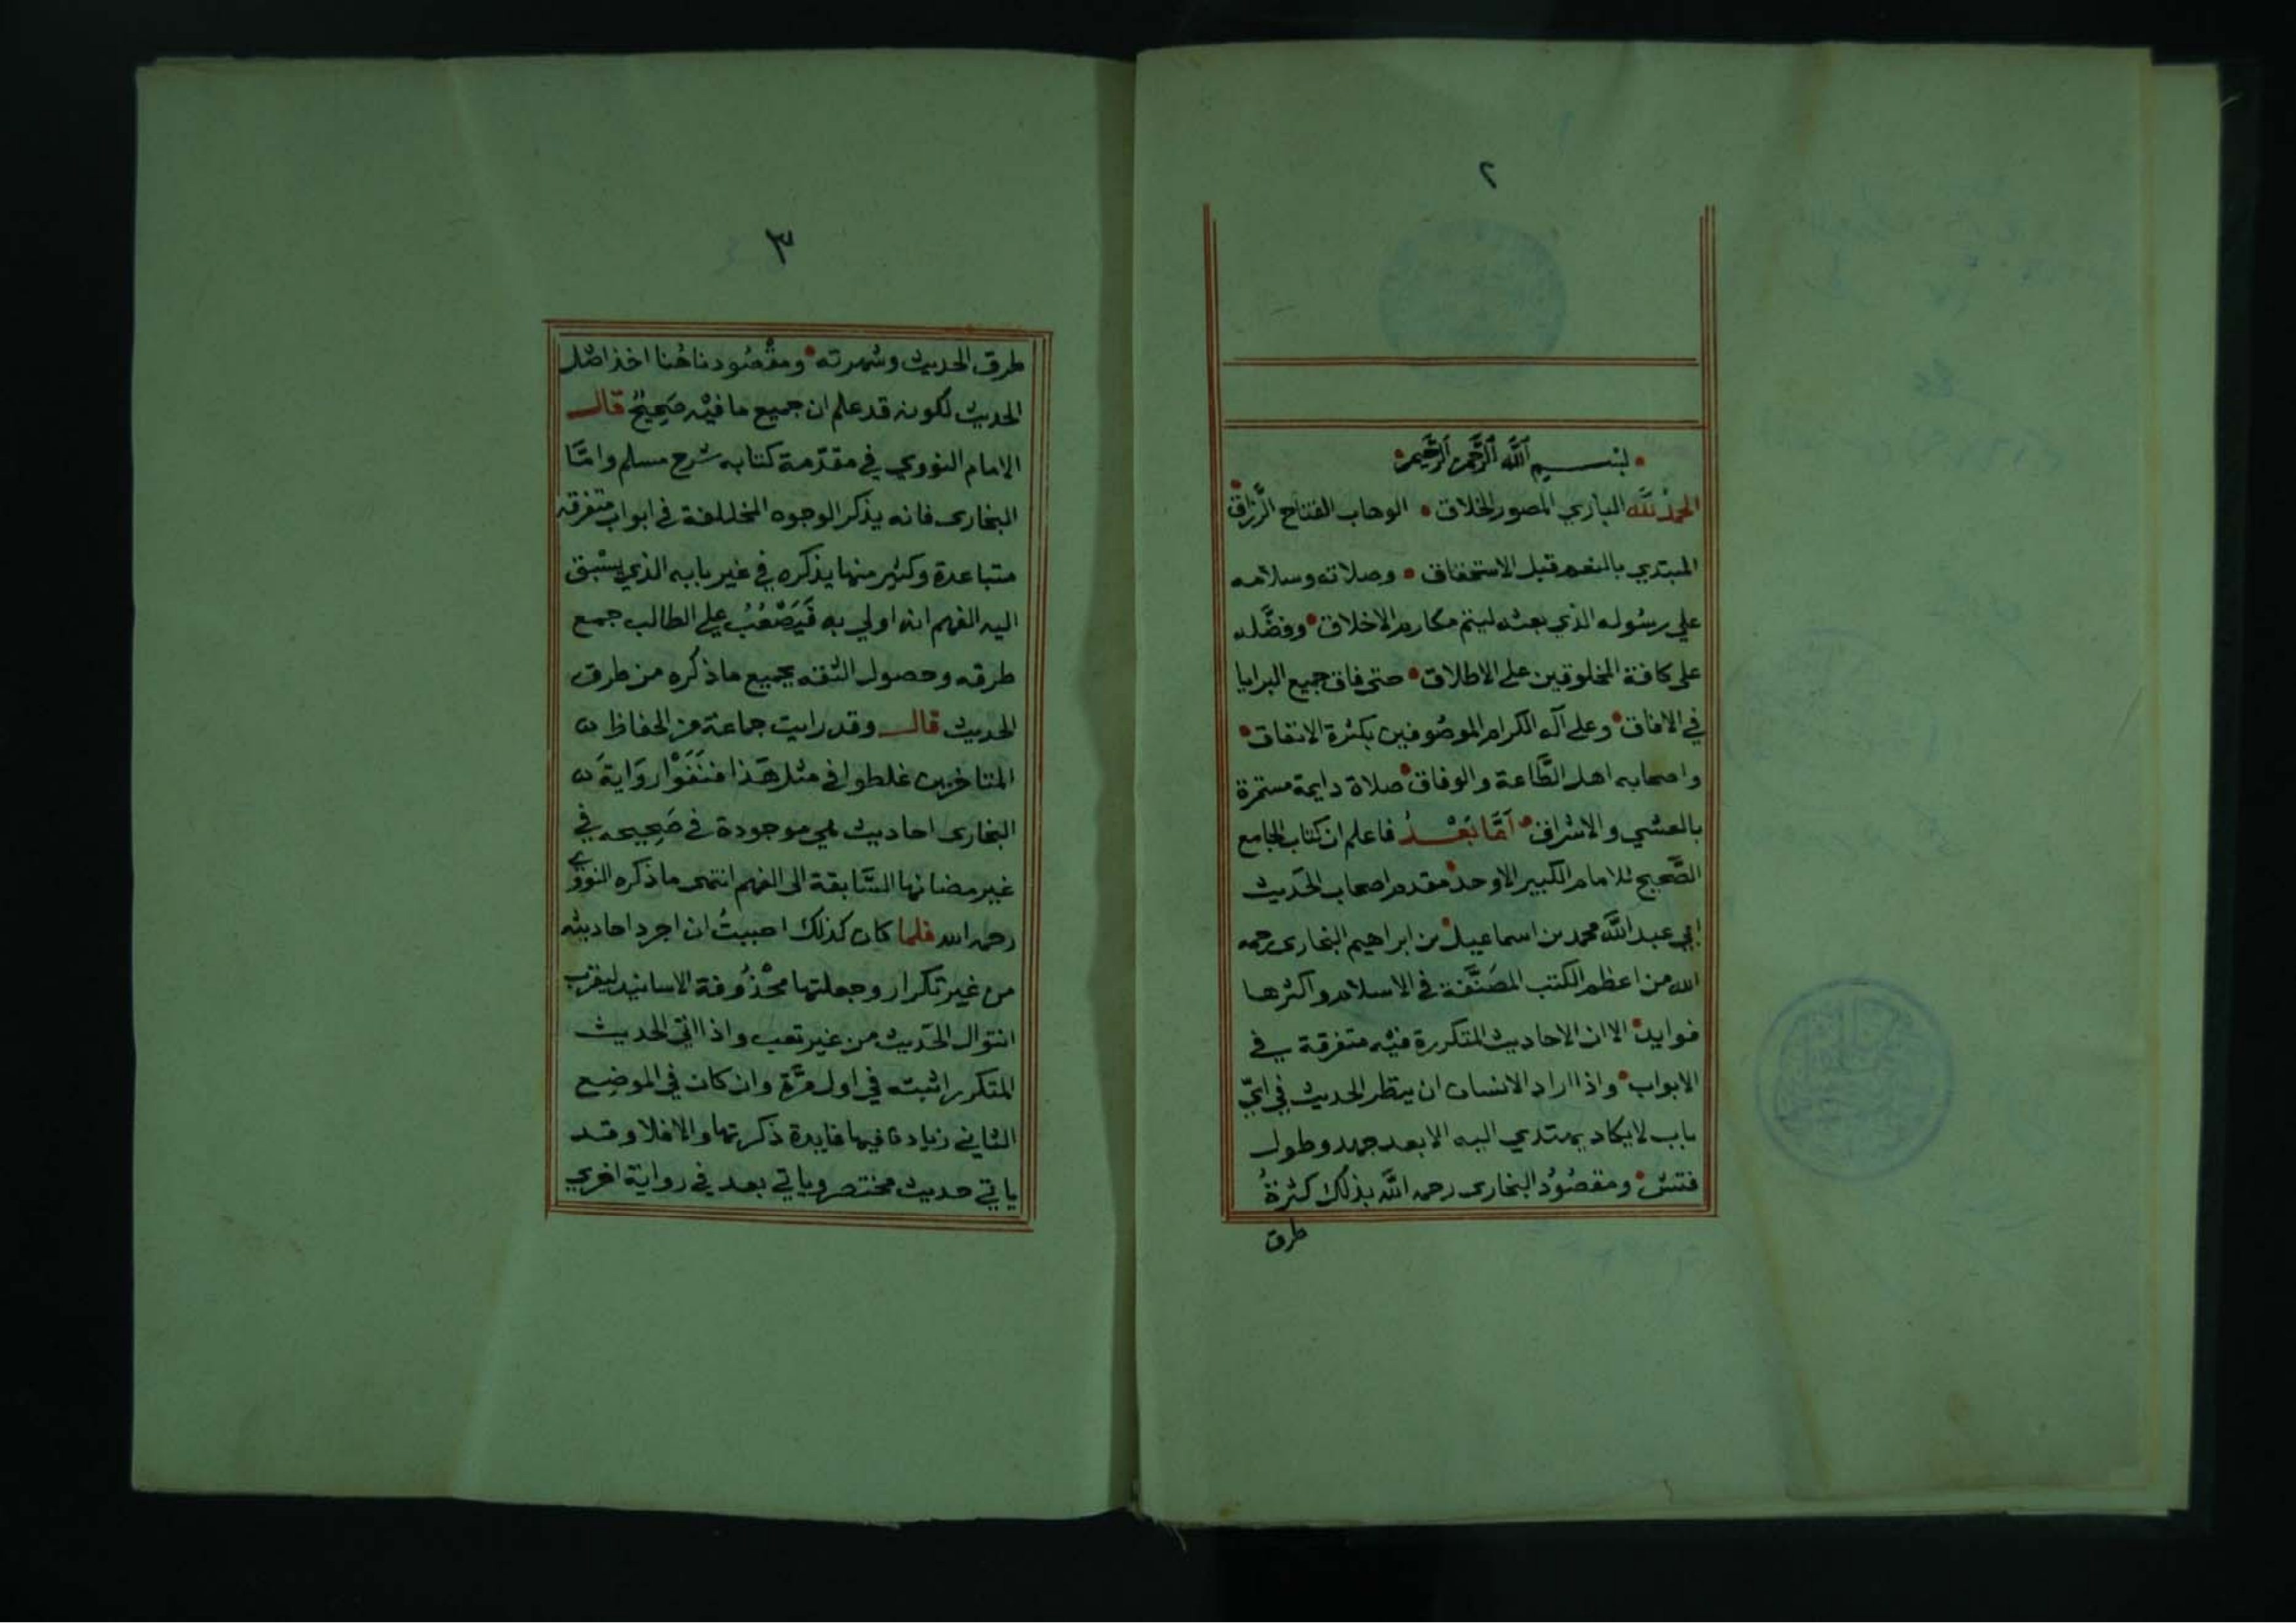 ٢
بسم الله الرحمن الرحيم
الحمد لله الباري المصور الخلاق • الوهاب الفتاح الرزاق
المبتدي بالنعم قبل الاستحقاق • وصلاته وسلامه
علي رسوله الذي بعثه ليتم مكارم الاخلاق • وفضله
على كافة المخلوقين على الاطلاق • حتى فاق جميع البرايا
في الافاق • وعلى آله الكرام الموصوفين بكثرة الانفاق •
واصحابه اهل الطاعة والوفاق • صلاة دايمة مستمرة
بالعشي والاشراق • أمّا بَعْدُ فاعلم ان كتاب الجامع
الصحيح للامام الكبير الاوحد • مقدم اصحاب الحديث
ابي عبد الله محمد بن اسماعيل بن ابراهيم البخارى رحمه
الله من اعظم الكتب المصَنَّفة في الاسلام واكثرها
فوايد • الا ان الاحاديث المتكررة فيه متفرقة في
الابواب • واذا اراد الانسان ان ينظر الحديث في ايّ
باب لا يكاد يهتدي اليه الا بعد جهد وطول
فتش • ومقصُودُ البخارى رحمه الله بذلك كثرةُ
طرق
٣
طرق الحديث وشهرته • ومقصُودنا هُنا اخذ اصْل
الحديث لكونه قد علم ان جميع ما فيْه صَحِيْحٌ قال
الامام النووي في مقدّمة كتابه شرح مسلم وامّا
البخارى فانه يذكر الوجوه المختلفة في ابواب متفرقة
متباعدة وكثير منها يذكره في غير بابه الذي يسْبق
اليه الفهم انه اولي به فَيَصْعُبُ علي الطالب جمع
طرقه وحصول الثقة بجميع ما ذكره من طرق
الحديث قال وقد رايت جماعة من الحفاظ
المتاخرين غلطوا في مثل هَذا فنَفَوْا رِوَايَةَ
البخارى احاديث هي موجودة في صَحِيحه في
غير مضانها السَّابقة الى الفهم انتهى ما ذكره النووي
رحمه الله فلما كان كذلك احببتُ ان اجرد احاديثه
من غير تكرار وجعلتها محْذُوفة الاسانيد ليقرب
انتوال الحَديث من غير تعب واذا اتي الحديث
المتكرر اثبته في اول مرَّة وان كان في الموضِع
الثاني زيادة فيها فايدة ذكرتها والا فلا وقد
ياتي حديث مختصر وياتي بعد في رواية اخري